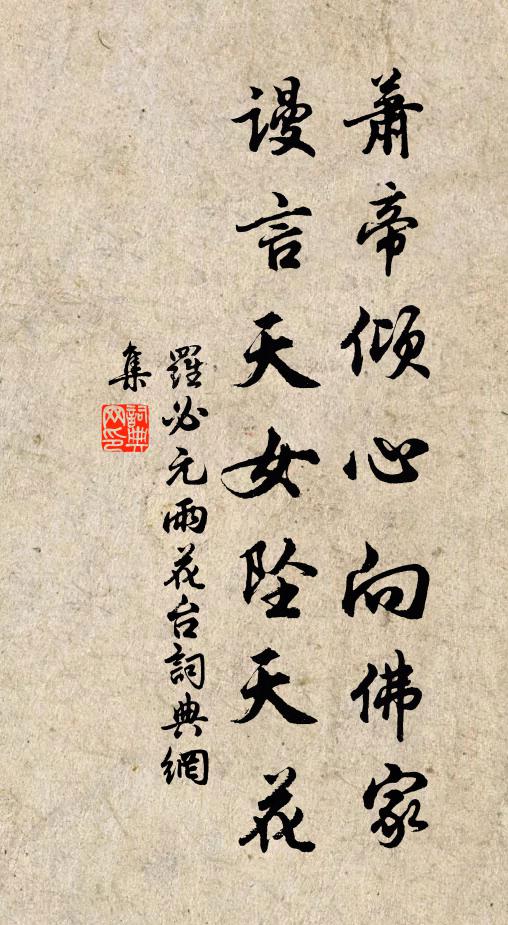 萧帝倾心向佛家
谩言天女坠天花
羅必元雨花台詞典網
集
詞典
网印